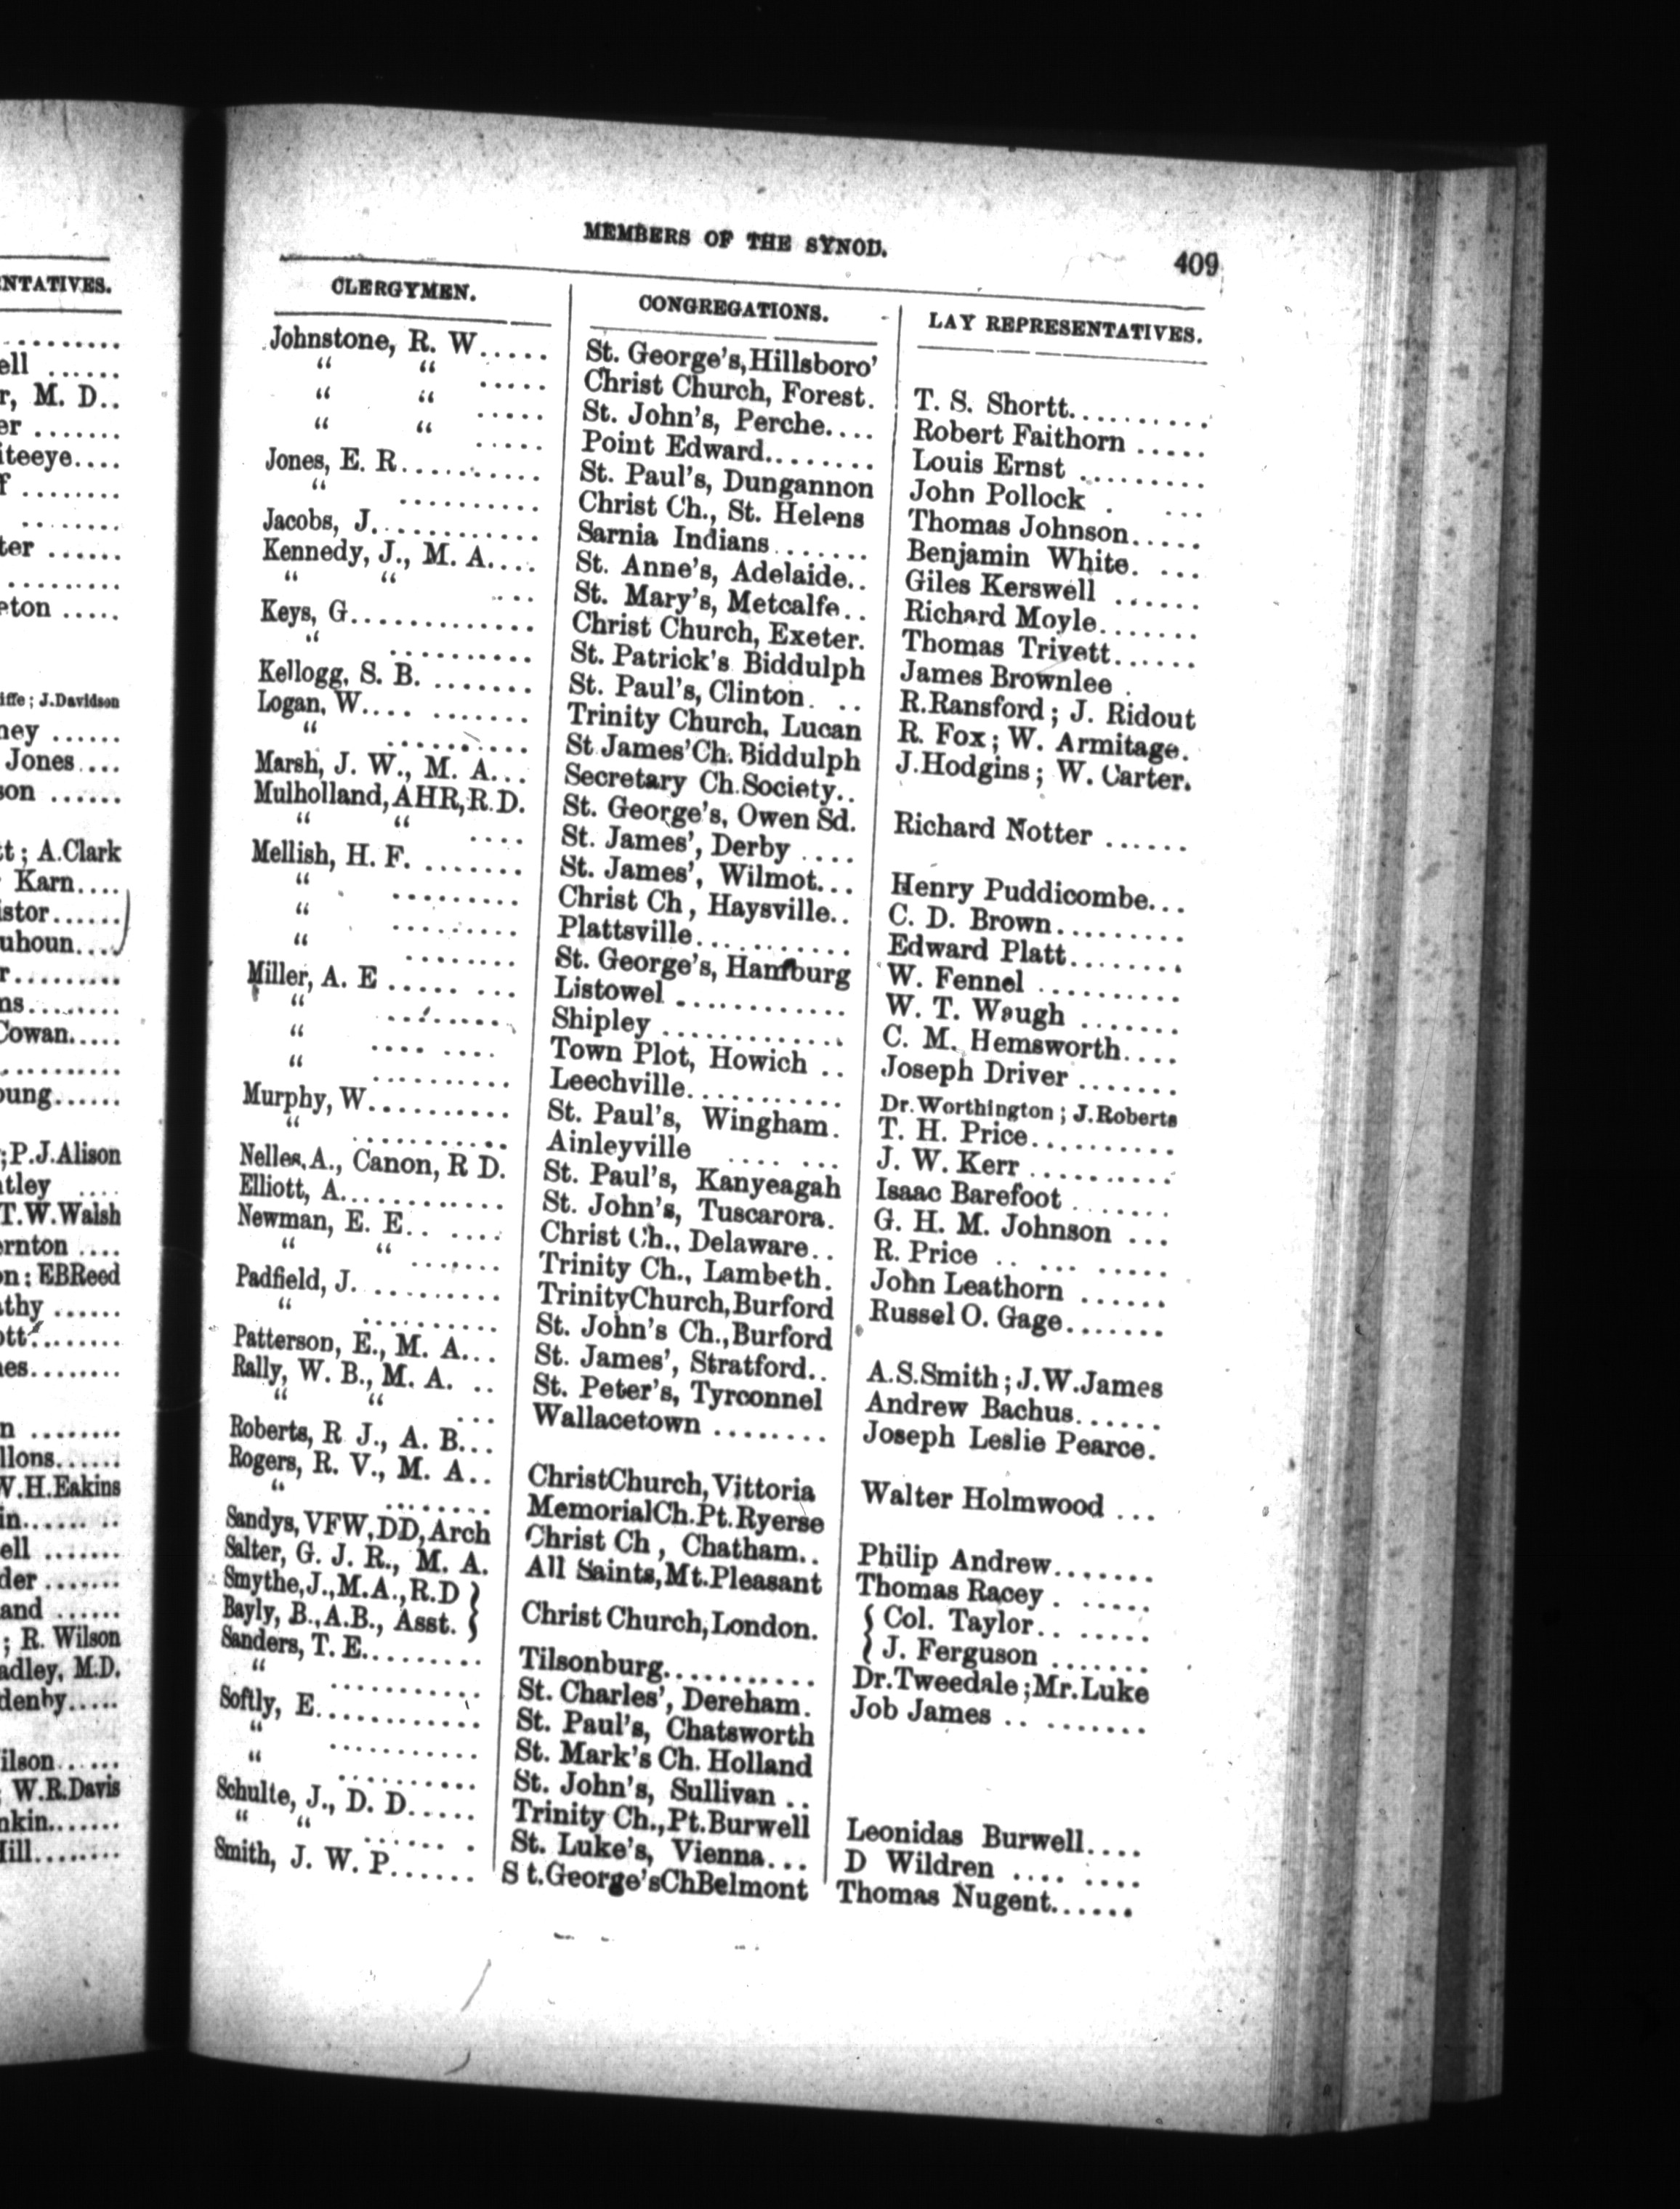 NTATIVES.
ell ......
r, M. D..
er .......
iteeye....
f ........
ter ......
eton .....
iffe ; J.Davidson
ney ......
Jones....
son ......
tt ; A.Clark
Karn....
istor......
uhoun....
r.........
ns........
Cowan.....
oung......
;P.J.Alison
tley ....
T.W.Walsh
ernton ....
on ; EBReed
athy ......
ott........
nes........
n ........
llons......
W.H.Eakins
in........
ell .......
der .......
and ......
; R. Wilson
adley, M.D.
denby.....
ilson......
; W.R.Davis
nkin.......
Hill........
MEMBERS OF THE SYNOD. 409
CLERGYMEN. CONGREGATIONS. LAY REPRESENTATIVES.
Johnstone, R. W..... St. George's, Hillsboro'
“ “ ..... Christ Church, Forest. T. S. Shortt..........
“ “ ..... St. John's, Perche.... Robert Faithorn .....
“ “ ..... Point Edward........ Louis Ernst .........
Jones, E. R.......... St. Paul's, Dungannon John Pollock . ...
“ .......... Christ Ch., St. Helens Thomas Johnson.....
Jacobs, J............ Sarnia Indians....... Benjamin White. ...
Kennedy, J., M. A.... St. Anne's, Adelaide.. Giles Kerswell ......
“ “ ... St. Mary's, Metcalfe.. Richard Moyle.......
Keys, G............. Christ Church, Exeter. Thomas Trivett......
“ .......... St. Patrick's Biddulph James Brownlee .
Kellogg, S. B. ....... St. Paul's, Clinton. .. R.Ransford ; J. Ridout
Logan, W.... ....... Trinity Church, Lucan R. Fox ; W. Armitage.
“ .......... St James'Ch. Biddulph J.Hodgins ; W. Carter.
Marsh, J. W., M. A... Secretary Ch.Society..
Mulholland, AHR, R.D. St. George's, Owen Sd. Richard Notter ......
“ “ .... St. James', Derby ....
Mellish, H. F. ....... St. James', Wilmot... Henry Puddicombe...
“ ......... Christ Ch, Haysville.. C. D. Brown.........
“ ......... Plattsville........... Edward Platt........
“ ........ St. George's, Hamburg W. Fennel ..........
Miller, A. E ..... ... Listowel ............ W. T. Waugh .......
“ ......... Shipley ............. C. M. Hemsworth....
“ .... .... Town Plot, Howich .. Joseph Driver .......
“ .......... Leechville........... Dr.Worthington ; J.Roberts
Murphy, W.......... St. Paul's, Wingham. T. H. Price..........
“ ........... Ainleyville .... ... J. W. Kerr ..........
Nelles, A., Canon, R D. St. Paul's, Kanyeagah Isaac Barefoot .......
Elliott, A............ St. John's, Tuscarora. G. H. M. Johnson ...
Newman, E. E.. .... Christ Ch., Delaware.. R. Price .. ... .....
“ “ ....... Trinity Ch., Lambeth. John Leathorn ......
Padfield, J. .......... TrinityChurch,Burford Russel O. Gage.......
“ .......... St. John's Ch.,Burford
Patterson, E., M. A... St. James', Stratford.. A.S.Smith ; J.W.James
Rally, W. B., M. A. .. St. Peter's, Tyrconnel Andrew Bachus......
“ “ ... Wallacetown ........ Joseph Leslie Pearce.
Roberts, R J., A. B...
Rogers, R. V., M. A.. ChristChurch,Vittoria Walter Holmwood ...
“ ........ MemorialCh.Pt.Ryerse
Sandys, VFW, DD, Arch Christ Ch , Chatham.. Philip Andrew.......
Salter, G. J. R., M. A. All Saints,Mt.Pleasant Thomas Racey . .....
Smythe, J., M.A., R.D } { Col. Taylor.. .....
Bayly, B., A.B., Asst. } Christ Church, London. { J. Ferguson .......
Sanders, T. E......... Tilsonburg........... Dr.Tweedale ;Mr.Luke
“ ........... St. Charles', Dereham. Job James .. .......
Softly, E............ St. Paul's, Chatsworth
“ ........... St. Mark's Ch. Holland
“ .......... St. John's, Sullivan ..
Schulte, J., D. D..... Trinity Ch.,Pt.Burwell Leonidas Burwell....
“ “ ...... . St. Luke's, Vienna... D Wildren .... ....
Smith, J. W. P...... S t.George'sChBelmont Thomas Nugent......